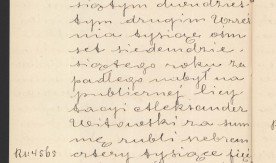 siątym dwudzies
tym drugim Wrześ
nia tysiąc ośm
set siedemdzie-
siątego roku za
padłego nabył na
publicznej licy
tacyi Aleksander
Witowski za sum
mę rubli srebrem
cztery tysiące